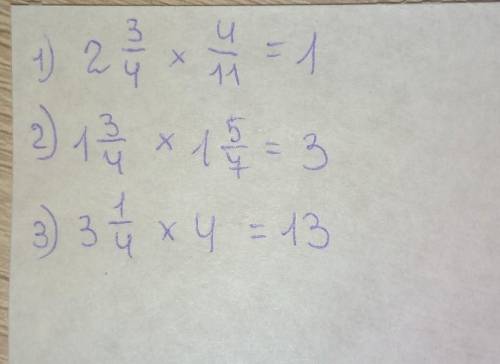 1) 2 3/4 × 4/11 = 1
2) 1 3/4 × 1 5/7 = 3
3) 3 1/4 × 4 = 13